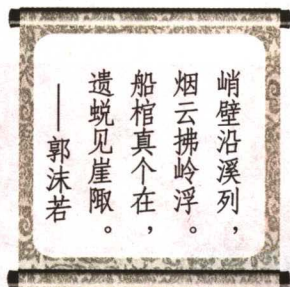 峭壁沿溪列，
烟云拂岭浮。
船棺真个在，
遗蜕见崖陬。
——郭沫若